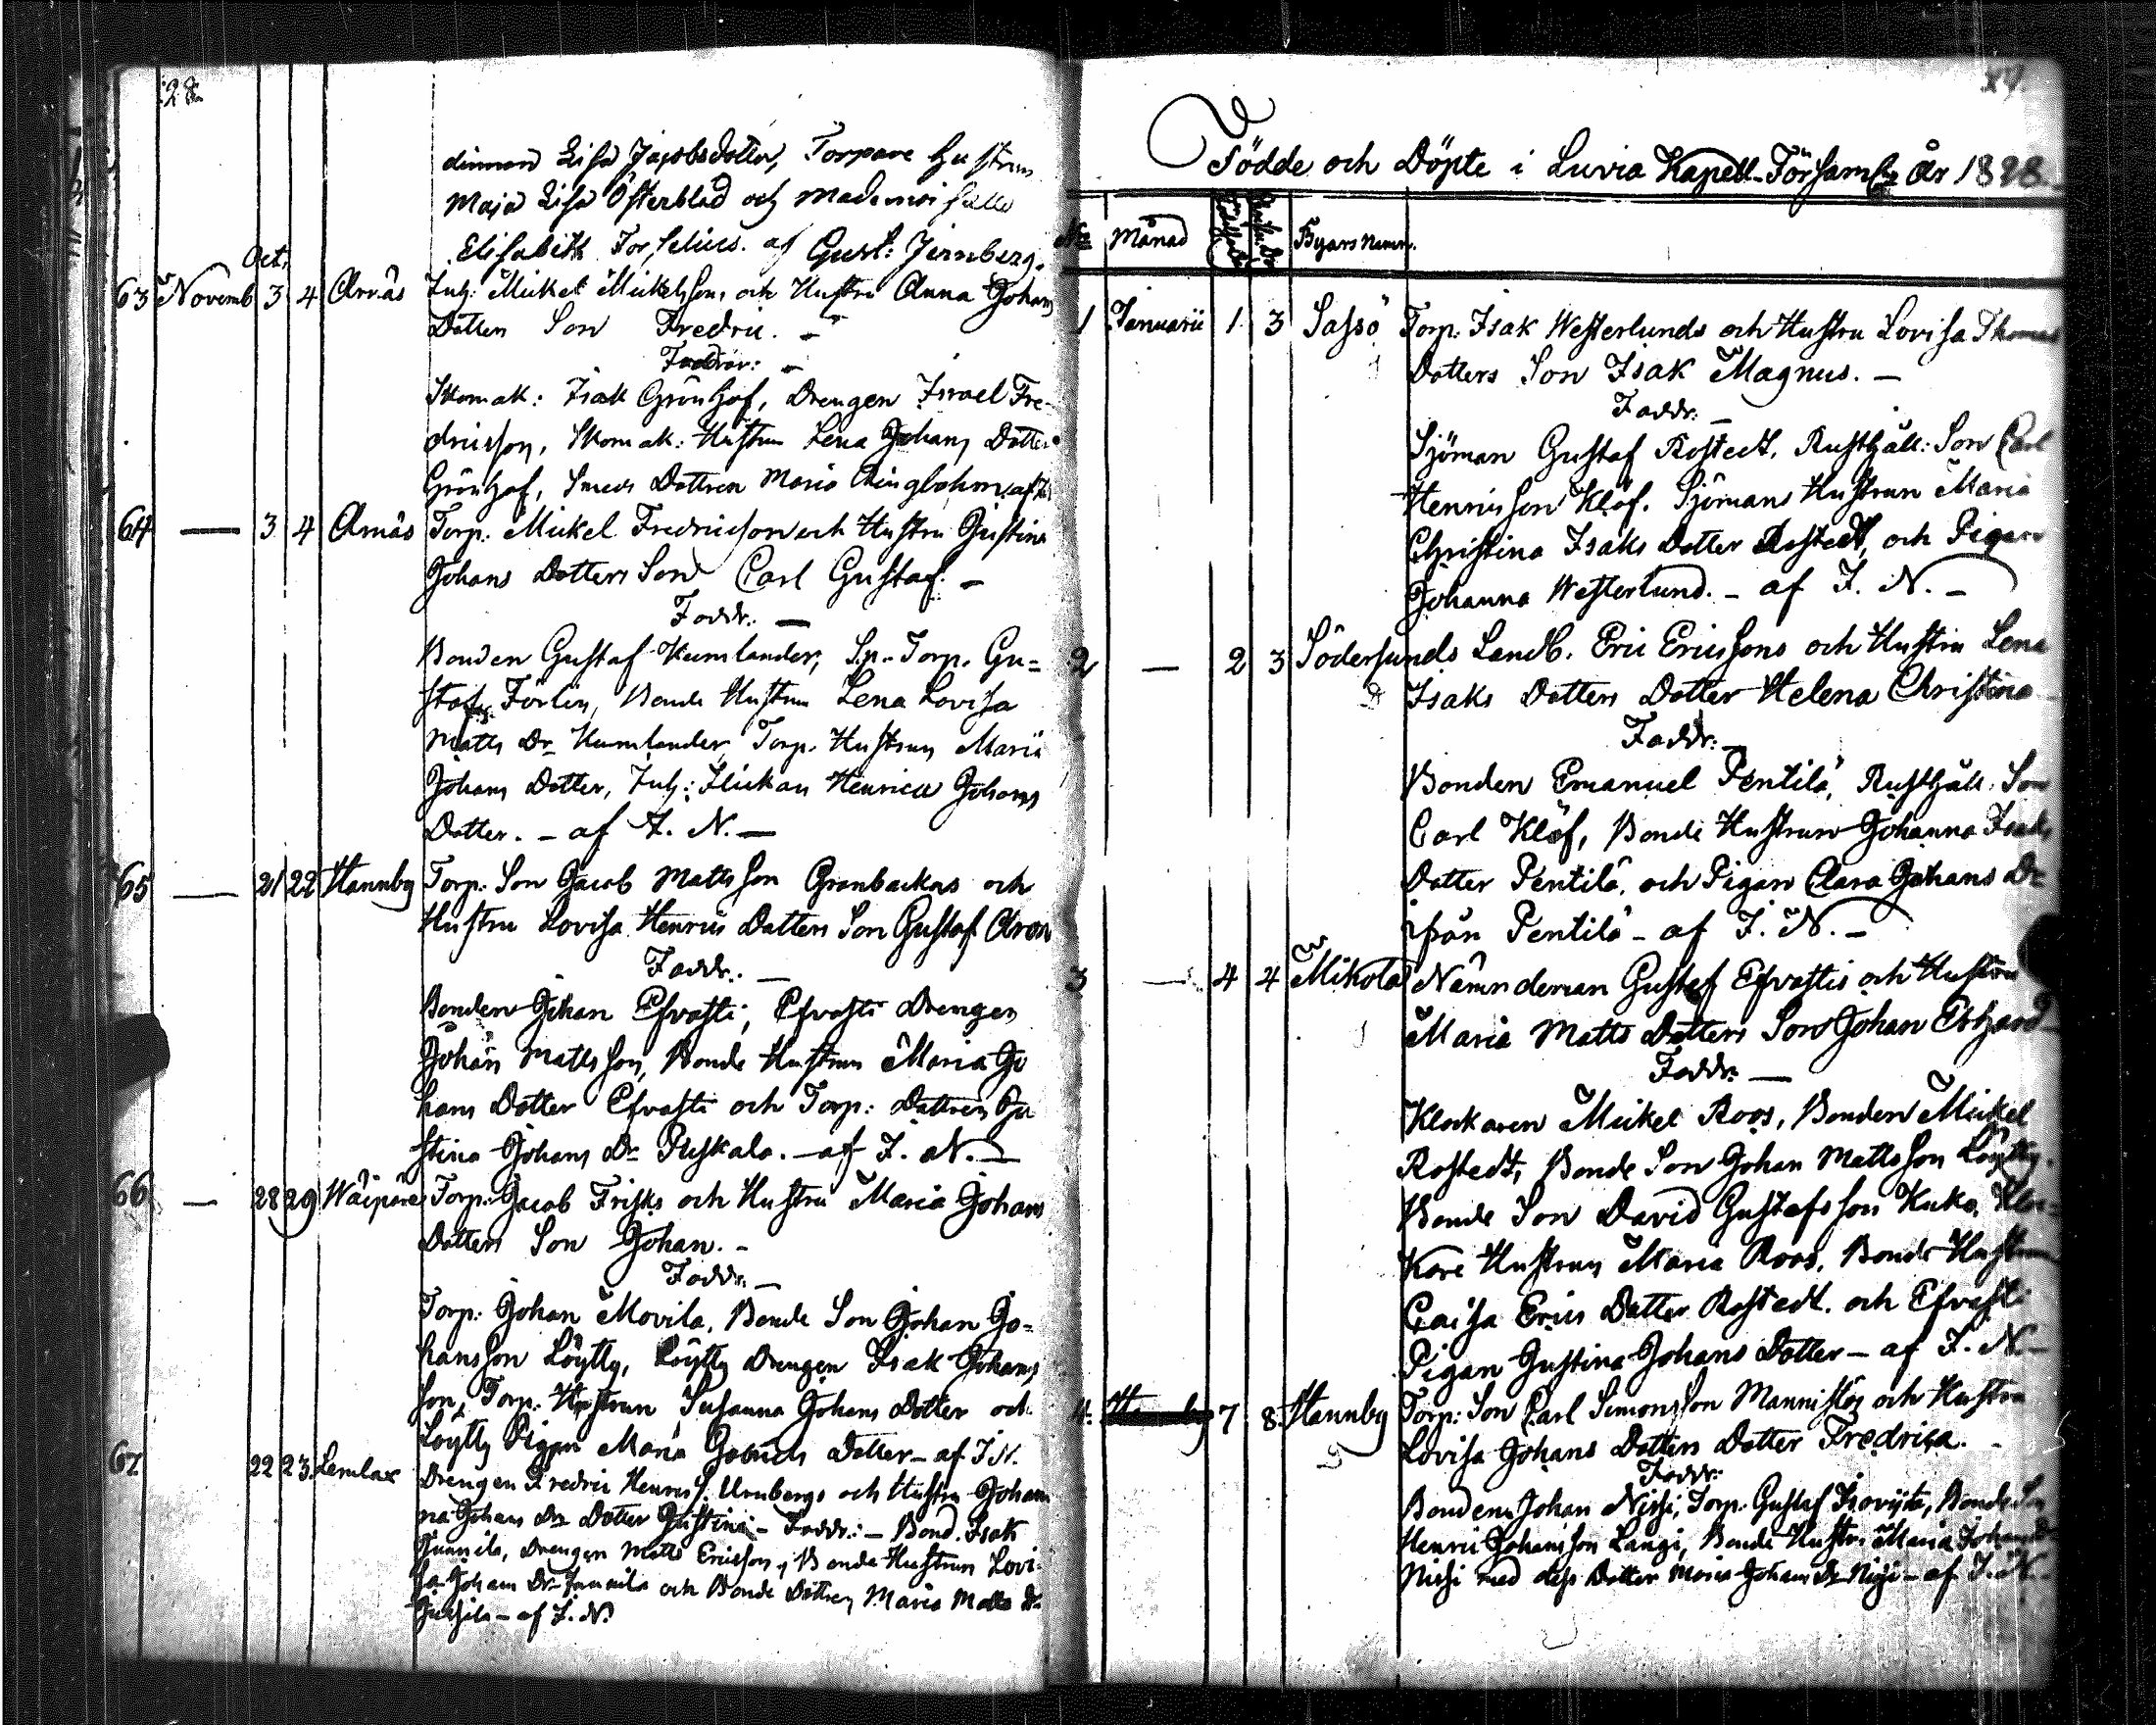 28.
dinnan Lisa Jacobsdotter, Torpare Hustrun
Maja Lisa Österblad och Mademoiselle
Elisabeth Forselius. af Gust: Jernberg.
Oct.
63 Novemb 3 4 Arnäs Inh: Mickel Mickelsson och Hustru Anna Johans
Dotters Son Fredric. -
Faddrar: -
Skomak: Isak Grönhof, Drengen Israel Fre-
dricsson, Skomak: Hustrun Lena Johans Dotter
Grönhof, Smeds Dottren Maria Ringbohm. af
64 — 3 4 Arnäs Torp. Mickel Fredricson och Hustru Gustina
Johans Dotters Son Carl Gustaf. -
Faddr: —
Bonden Gustaf Kumlander, Sp. Torp. Gu=
staf Förlin, Bonde Hustrun Lena Lovisa
Matts Dr Kumlander, Torp. Hustrun Maria
Johans Dotter, Inh: Flickan Henrica Johans
Dotter. - af I. N. —
65 — 21 22 Hannby Torp: Son Jacob Mattsson Granbackas och
Hustru Lovisa Henrics Dotters Son Gustaf Aron
Faddr: —
Bonden Johan Efrasti, Efrasti Drengen
Johan Mattsson, Bonde Hustrun Maria Jo
hans Dotter Efrasti och Torp: Dottren Gu
stina Johans Dr Puskala. - af I. N. —
66 — 28 29 Wäipäre Torp: Jacob Frisks och Hustru Maria Johans
Dotters Son Johan. -
Faddr: —
Torp: Johan Movila, Bonde Son Johan Jo-
hansson Löytty, Löytty Drengen Isak Johans
son, Torp. Hustrun Susanna Johans Dotter och
Löytty Pigan Maria Gabriels Dotter - af I N.
67 22 23 Lemlax Drengen Fredric Henricss. Urnbergs och Hustru Johan
na Johans Dr Dotter Gustina - Faddr: - Bond. Isak
Junnila, Drengen Matts Ericsson, Bonde Hustrun Lovi-
sa Johans Dr Junnila och Bonde Dottren Maria Matts Dr
Jussila - af I. N.
Födde och Döpte i Luvia Kapell-Församlg År 1828.
No Månad Byars Namn.
1 Januarii 1 3 Sassö Torp: Isak Westerlunds och Hustru Lovisa Thomas
Dotters Son Isak Magnus. —
Faddr: —
Sjöman Gustaf Rostedt, Rusthåll: Son Carl
Henricsson Klöf. Sjömans Hustrun Maria
Christina Isaks Dotter Rostedt, och Pigan
Johanna Westerlund. - af I. N. -
2 — 2 3 Södersunds Landb. Eric Ericssons och Hustru Lena
Isaks Dotters Dotter Helena Christina
Faddr: —
Bonden Emanuel Pentilä, Rusthåll: Son
Carl Klöf, Bonde Hustrun Johanna Isaks
Dotter Pentilä, och Pigan Clara Johans Dr
ifrån Pentilä - af I. N. -
3 — 4 4 Mikola Nämndeman Gustaf Efrastis och Hustru
Maria Matts Dotters Son Johan Erhard
Faddr: —
Klockaren Mickel Roos, Bonden Mickel
Rostedt, Bonde Son Johan Mattsson Löytty.
Bonde Son David Gustafsson Kuko, Kloc=
kare Hustrun Maria Roos, Bonde Hustrun
Caisa Erics Dotter Rostedt. och Efrasti
Pigan Gustina Johans Dotter - af I. N -
4. 7 8 Hannby Torp: Son Carl Simonsson Mannistös och Hustru
Lovisa Johans Dotters Dotter Fredrica. -
Faddr:
Bonden Johan Nissi, Torp. Gustaf Isoviita, Bonde Son
Henric Johansson Langi, Bonde Hustr. Maria Johans Dr
Nissi med dess Dotter Maria Johans Dr Nissi - af I. N.